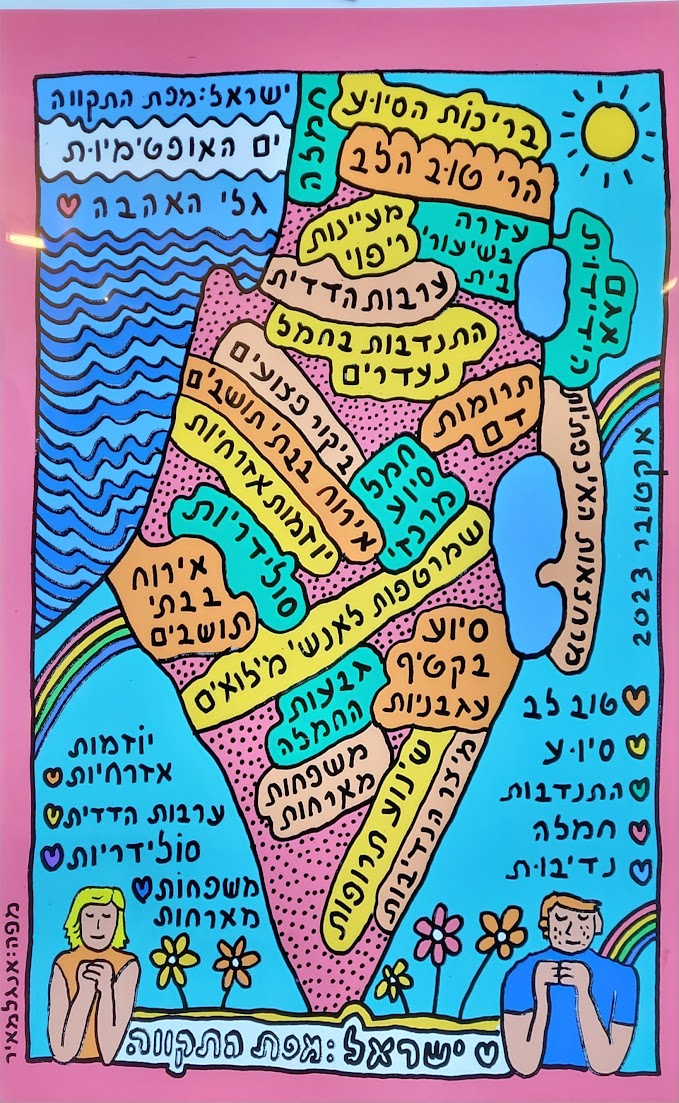 ישראל:מפת התקווה
ים האופטימיות
גלי האהבה
חמלה
בריכות הסיוע
הרי טוב הלב
מעיינות
ריפוי
עזרה
בשיעורי
בית
אגם
הידידות
ערבות הדדית
התנדבות בחמל
נעדרים
ביקור פצועים
אירוח בבתי תושבים
יוזמות אזרחיות
תרומות
דם
חמל
סיוע
מרכזי
סולידריות
אירוח
בבתי
תושבים
שמרטפות לאנשי מילואים
סיוע
בקטיף
עגבניות
גבעות
החמלה
משפחות
מארחות
שינוע תרופות
מיצר הנדיבות
אוקטובר 2023
טוב לב
סיוע
התנדבות
חמלה
נדיבות
יוזמות
אזרחיות
ערבות הדדית
סולידריות
משפחות
מארחות
ישראל:מפת התקווה